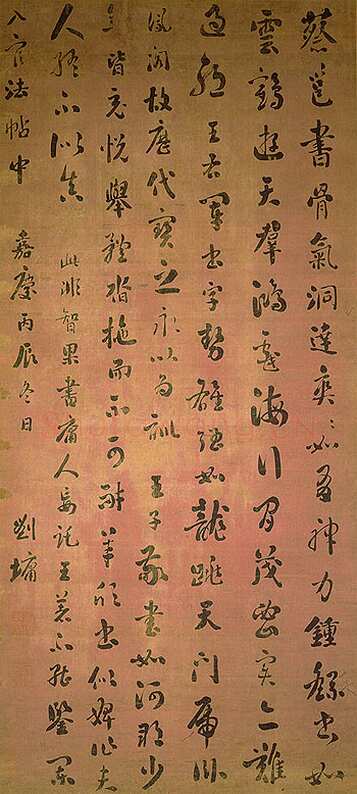 蔡邕書骨氣洞達爽〻如有神力鍾繇書如
雲鶴遊天羣鴻戲海行間茂密實亦難
過 王右軍書字勢雄強如龍跳天門虎臥
鳳閣故歷代寶之永以為訓 王子敬書如河朔少
年皆充悅舉體沓拖而不可耐羊欣書似婢作夫
人 不似真 此非智果書庸人妄託王著不能鑒
入官法帖中 嘉慶丙辰冬日 劉墉